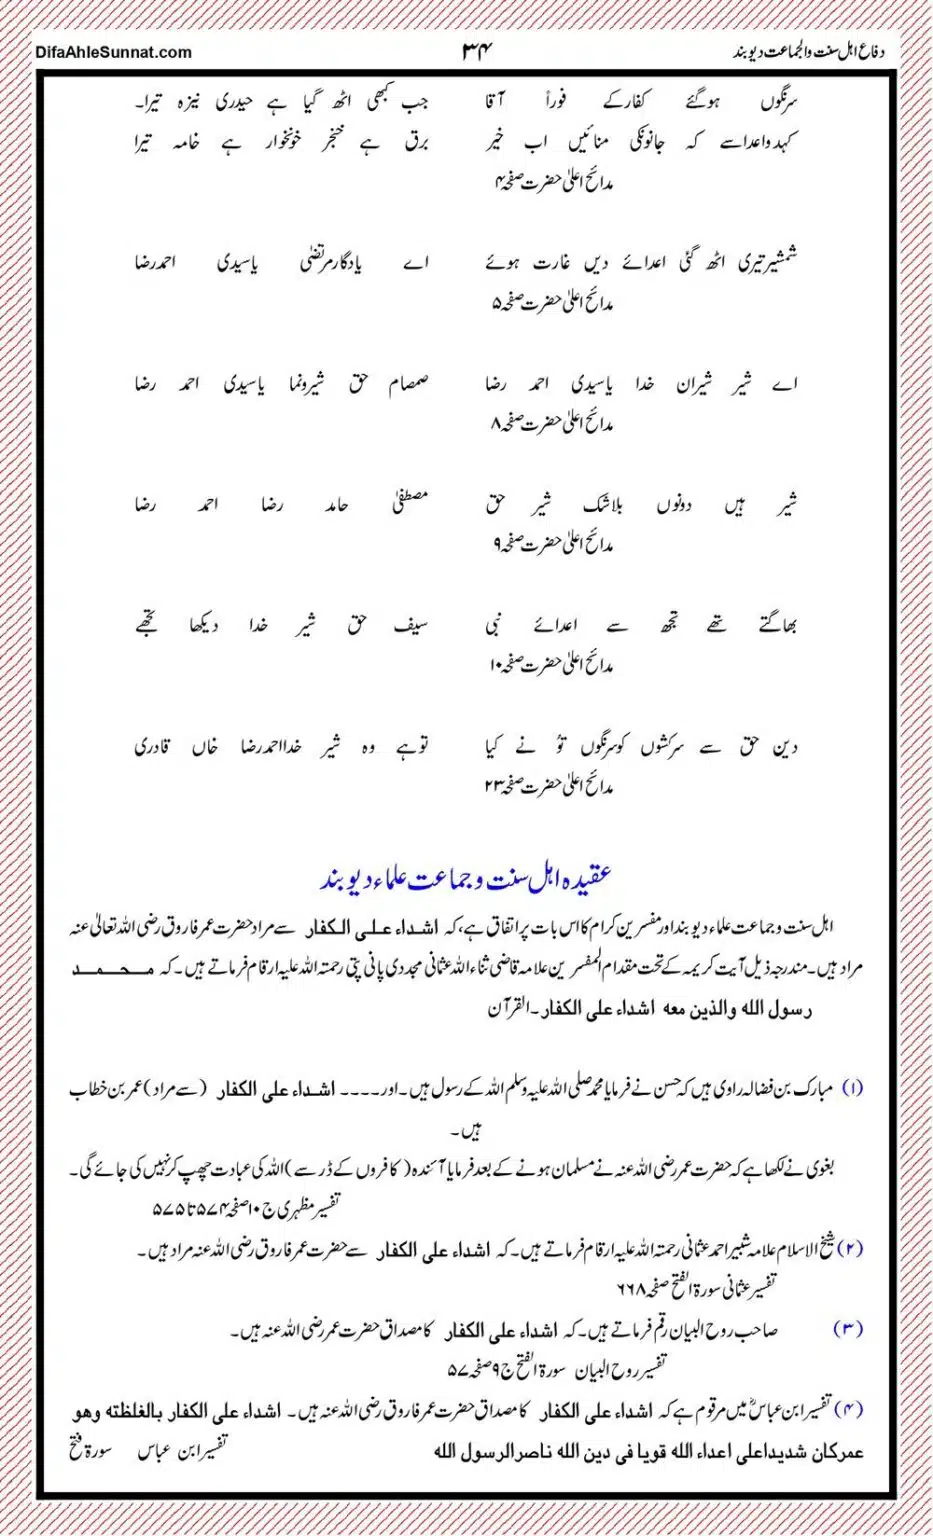 DifaAhleSunnat.com ۳۴ دفاع اہل سنت والجماعت دیوبند
سرنگوں ہوگئے کفارکے فوراً آقا جب کبھی اٹھ گیا ہے حیدری نیزہ تیرا۔
کہدو اعداسے کہ جانونکی منائیں اب خیر برق ہے خنجر خونخوار ہے خامہ تیرا
مدائح اعلیٰ حضرت صفحہ ۴
شمشیر تیری اٹھ گئی اعدائے دیں غارت ہوئے اے یادگار مرتضٰی یاسیدی احمدرضا
مدائح اعلیٰ حضرت صفحہ ۵
اے شیر شیران خدا یاسیدی احمد رضا صمصام حق شیرونما یاسیدی احمد رضا
مدائح اعلیٰ حضرت صفحہ ۸
شیر ہیں دونوں بلاشک شیر حق مصطفیٰ حامد رضا احمد رضا
مدائح اعلیٰ حضرت صفحہ ۹
بھاگتے تھے تجھ سے اعدائے نبی سیف حق شیر خدا دیکھا تجھے
مدائح اعلیٰ حضرت صفحہ ۱۰
دین حق سے سرکشوں کوسرنگوں توُ نے کیا توہے وہ شیر خدااحمدرضا خاں قادری
مدائح اعلیٰ حضرت صفحہ ۲۳
عقیدہ اہل سنت و جماعت علماء دیوبند
اہل سنت و جماعت علماء دیوبند اور مفسرین کرام کا اس بات پر اتفاق ہے، کہ اشداء علی الکفار سے مراد حضرت عمر فاروق رضی اللہ تعالیٰ عنہ
مراد ہیں۔ مندرجہ ذیل آیت کریمہ کے تحت مقدام المفسرین علامہ قاضی ثناء اللہ عثمانی مجددی پانی پتی رحمتہ اللہ علیہ ارقام فرماتے ہیں۔ کہ محمد
رسول الله والذین معه اشداء علی الکفار۔ القرآن
(۱) مبارک بن فضالہ راوی ہیں کہ حسن نے فرمایا محمد صلی اللہ علیہ وسلم اللہ کے رسول ہیں۔ اور۔۔۔۔ اشداء علی الکفار (سے مراد) عمر بن خطاب
ہیں۔
بغوی نے لکھا ہے کہ حضرت عمر رضی اللہ عنہ نے مسلمان ہونے کے بعد فرمایا آئندہ (کافروں کے ڈر سے) اللہ کی عبادت چھپ کر نہیں کی جائے گی۔
تفسیر مظہری ج ۱۰ صفحہ ۵۷۴ تا ۵۷۵
(۲) شیخ الاسلام علامہ شبیر احمد عثمانی رحمتہ اللہ علیہ ارقام فرماتے ہیں۔ کہ اشداء علی الکفار سے حضرت عمر فاروق رضی اللہ عنہ مراد ہیں۔
تفسیر عثمانی سورۃ الفتح صفحہ ۶۶۸
(۳) صاحب روح البیان رقم فرماتے ہیں۔ کہ اشداء علی الکفار کا مصداق حضرت عمر رضی اللہ عنہ ہیں۔
تفسیر روح البیان سورۃ الفتح ج ۹ صفحہ ۵۷
(۴) تفسیر ابن عباسؓ میں مرقوم ہے کہ اشداء علی الکفار کا مصداق حضرت عمر فاروق رضی اللہ عنہ ہیں۔ اشداء علی الکفار بالغلظته وهو
عمرکان شدیداعلی اعداء الله قویا فی دین الله ناصرالرسول الله تفسیر ابن عباس سورۃ فتح